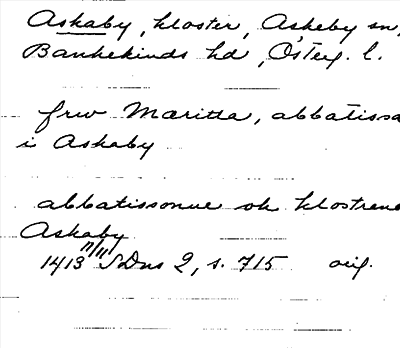 Askaby, kloster, Askeby sn,
Bankekinds hd, Österg. l.
frw Maritta, abbatissa
i Askaby
abbatissonne ok klostrene
Askaby
1413 11/11 SDns 2, s. 715 orig.